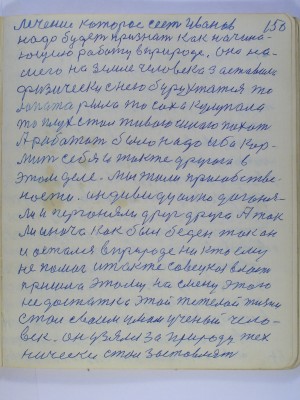 лечение которое сеет Иванов 150
надо будет признат как начина-
ющую работу вприроде. оно на-
шего на земле человека заставила
физически снею
лопата рыла то соха
то плух стал
А работат было надо иба кор-
мит себя и также других в
этом деле. мы жили присобстве-
ности. индивидуално догоня-
ли и перегоняли друг друга А так
как был беден так он
и остался вприроде ни кто ему
не помог итакже советская власт
пришла этому на смену этого
недостатка этой тяжелой жизни
стал своим умом ученый чело-
век. он узялся за природу тех
нически стал заставлят